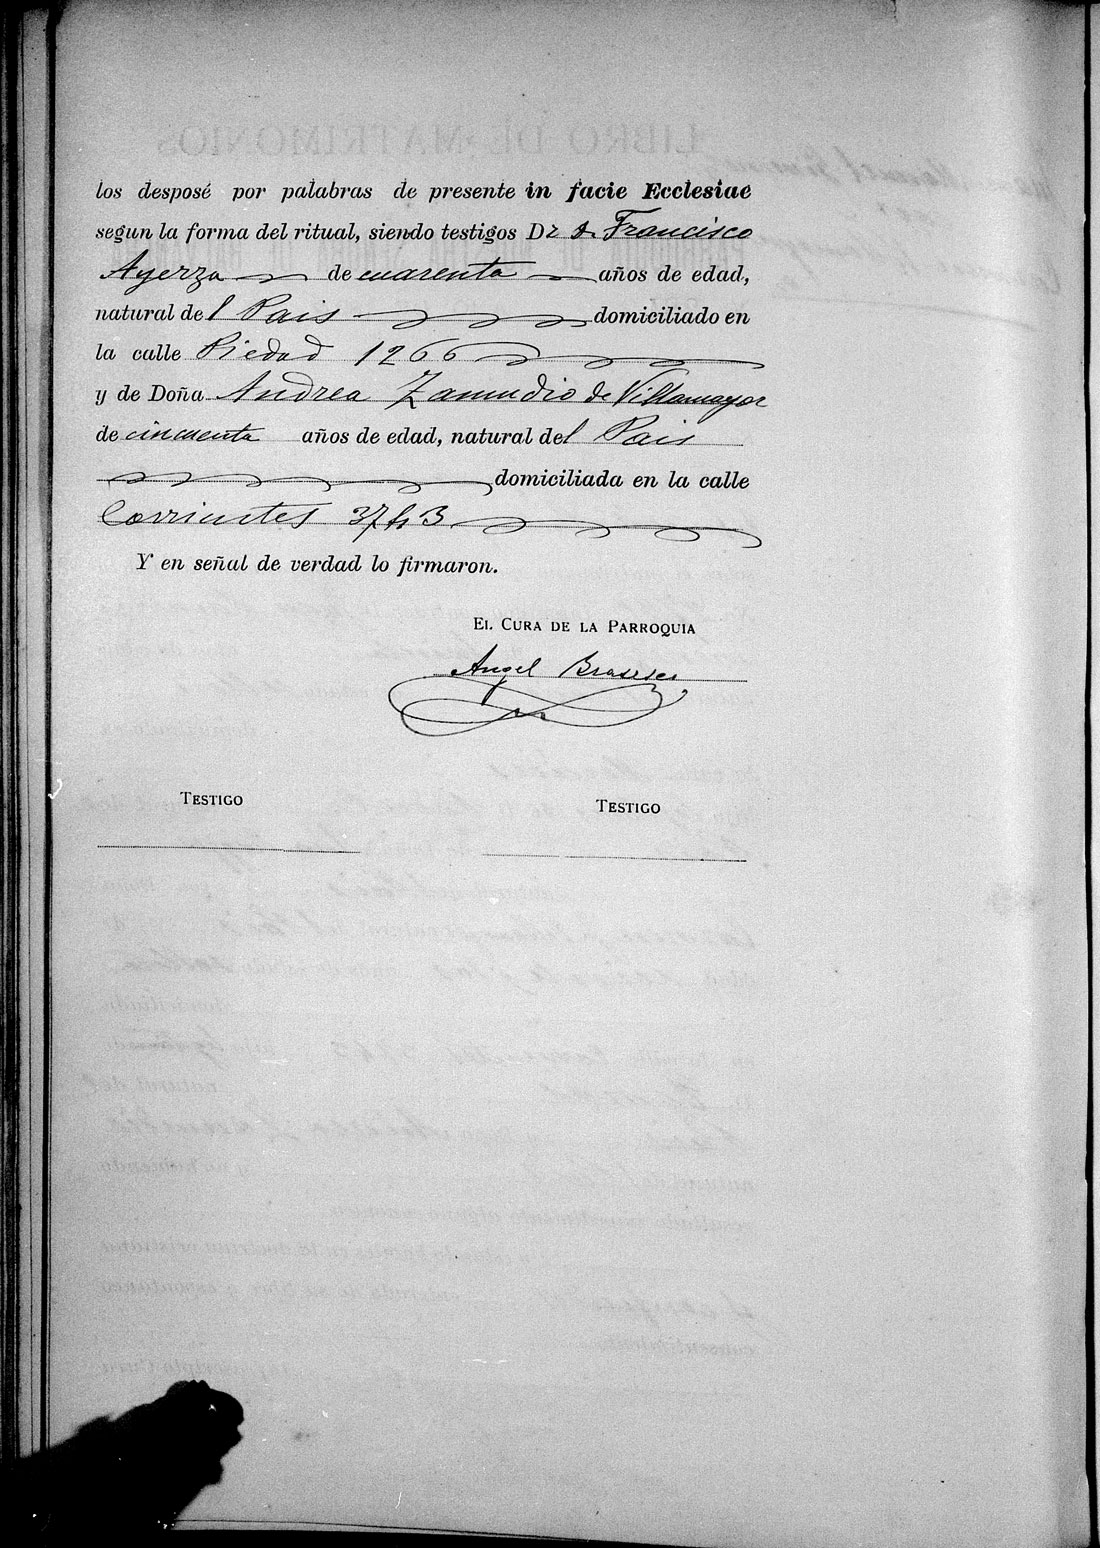 los desposé por palabras de presente in facie Ecclesiae
segun la forma del ritual, siendo testigos Dr d. Francisco
Ayerza de cuarenta años de edad,
natural del Pais domiciliado en
la calle Piedad 1266
y de Doña Andrea Zamudio de Villamayor
de cincuenta años de edad, natural del Pais
domiciliada en la calle
Corrientes 3743
Y en señal de verdad lo firmaron.
El Cura de la Parroquia
Angel Brasesco
Testigo Testigo